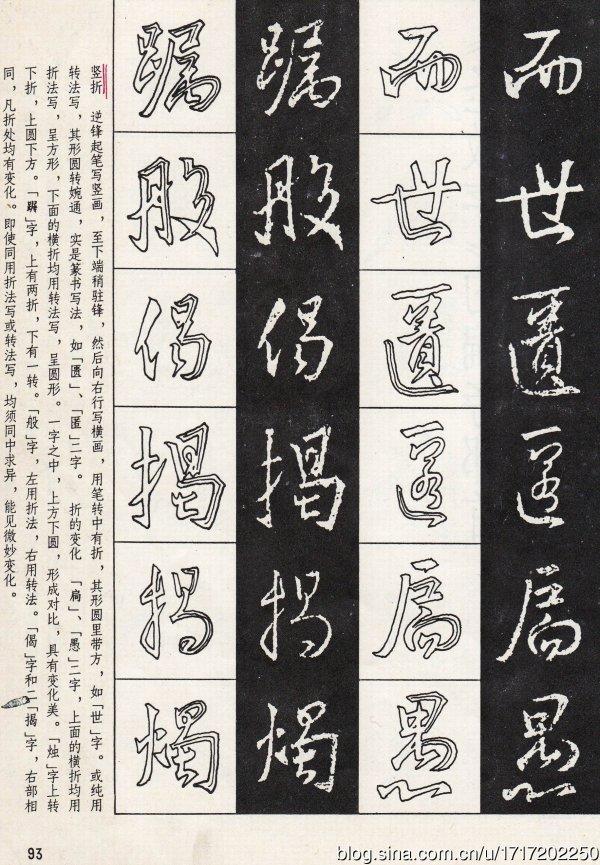 而
世
匱
匿
愚
般
偈
揭
揭
燭
竖折 逆锋起笔写竖画，至下端稍驻锋，然后向右行写横画，用笔转中有折，其形圆里带方，如「世」字。或纯用
转法写，其形圆转婉通，实是篆书写法，如「匮」、「匿」二字。 折的变化 「扃」、「愚」二字，上面的横折均用
折法写，呈方形，下面的横折均用转法写，呈圆形。一字之中，上方下圆，形成对比，具有变化美。「烛」字上转
下折，上圆下方。「」字，上有两折，下有一转。「般」字，左用折法，右用转法。「偈」字和二「揭」字，右部相
同，凡折处均有变化。即使同用折法写或转法写，均须同中求异，能见微妙变化。
93
blog.sina.com.cn/u/1717202250